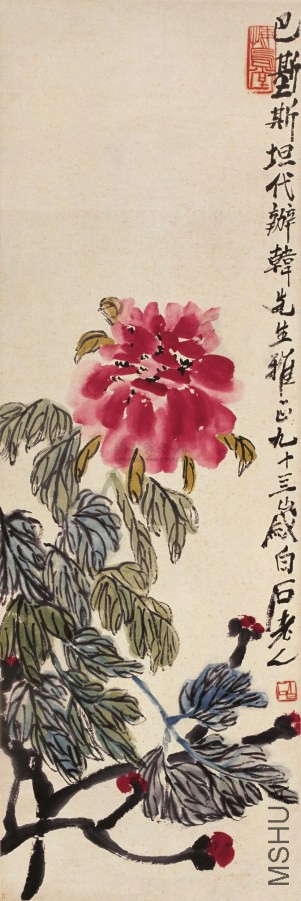 巴基斯坦代辦韓先生雅正九十三歲白石老人
悔烏堂
MSHUA